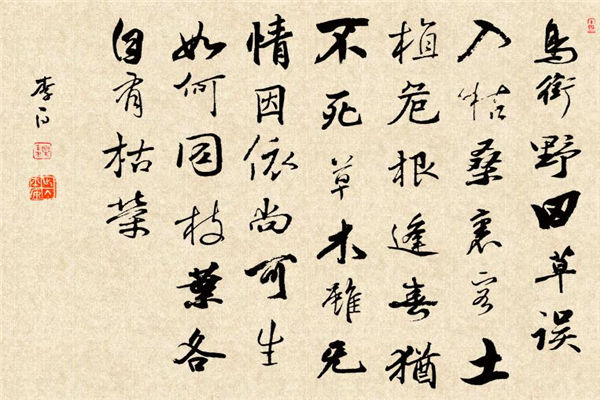 鳥銜野田草誤
入枯桑裏客土
植危根逢春猶
不死草木雖无
情因依尚可生
如何同枝葉各
自有枯榮
李白